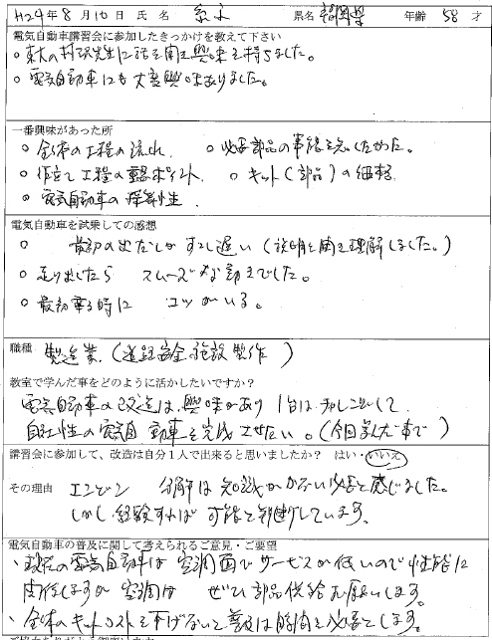 H24年 8月10日 氏名 県名 福岡県 年齢 58 才
電気自動車講習会に参加したきっかけを教えて下さい
○ 東大の村沢先生に話を聞き興味を持ちました。
○ 電気自動車にも大変興味ありました。
一番興味があった所
○ 全体の工程の流れ ○ 必要部品の事前を知したかった。
○ 組立て工程の重要ポイント ○ キット(部品)の価格
○ 電気自動車の 性
電気自動車を試乗しての感想
○ 最初の出だしが すこし遅い (説明を聞き理解しました。)
○ 走り出したら スムーズな動きでした。
○ 最初乗る時に コツがいる。
職種 製造業 (道路安全施設製作)
教室で学んだ事をどのように活かしたいですか?
電気自動車の改造は、興味があり 1台はチャレンジして
自社 の電気自動車を完成させたい。(今回学んだ事で)
講習会に参加して、改造は自分1人で出来ると思いましたか? はい・いいえ
その理由 エンジン 分解は知識がかなり必要と感じました。
しかし経験すれば 可能と判断しています。
電気自動車の普及に関して考えられるご意見・ご要望
、現在の電気自動車は空調面でサービスが低いので性能に
関係しますが 空調は ぜひ部品供給お願いします。
、全体のキットコストを下げないと普及は時間を必要とします。